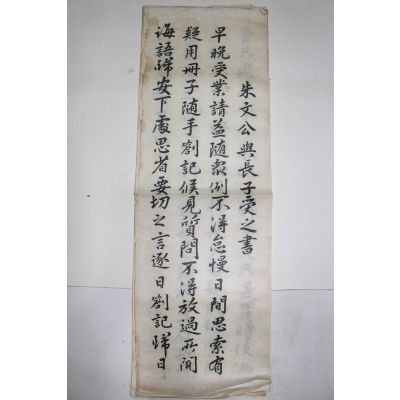 朱文公與長子受之書
早晩受業請益隨衆例不得怠慢日間思索有
疑用冊子隨手劄記候見質問不得放過所聞
誨語歸安下處思省要切之言逐日劄記歸日